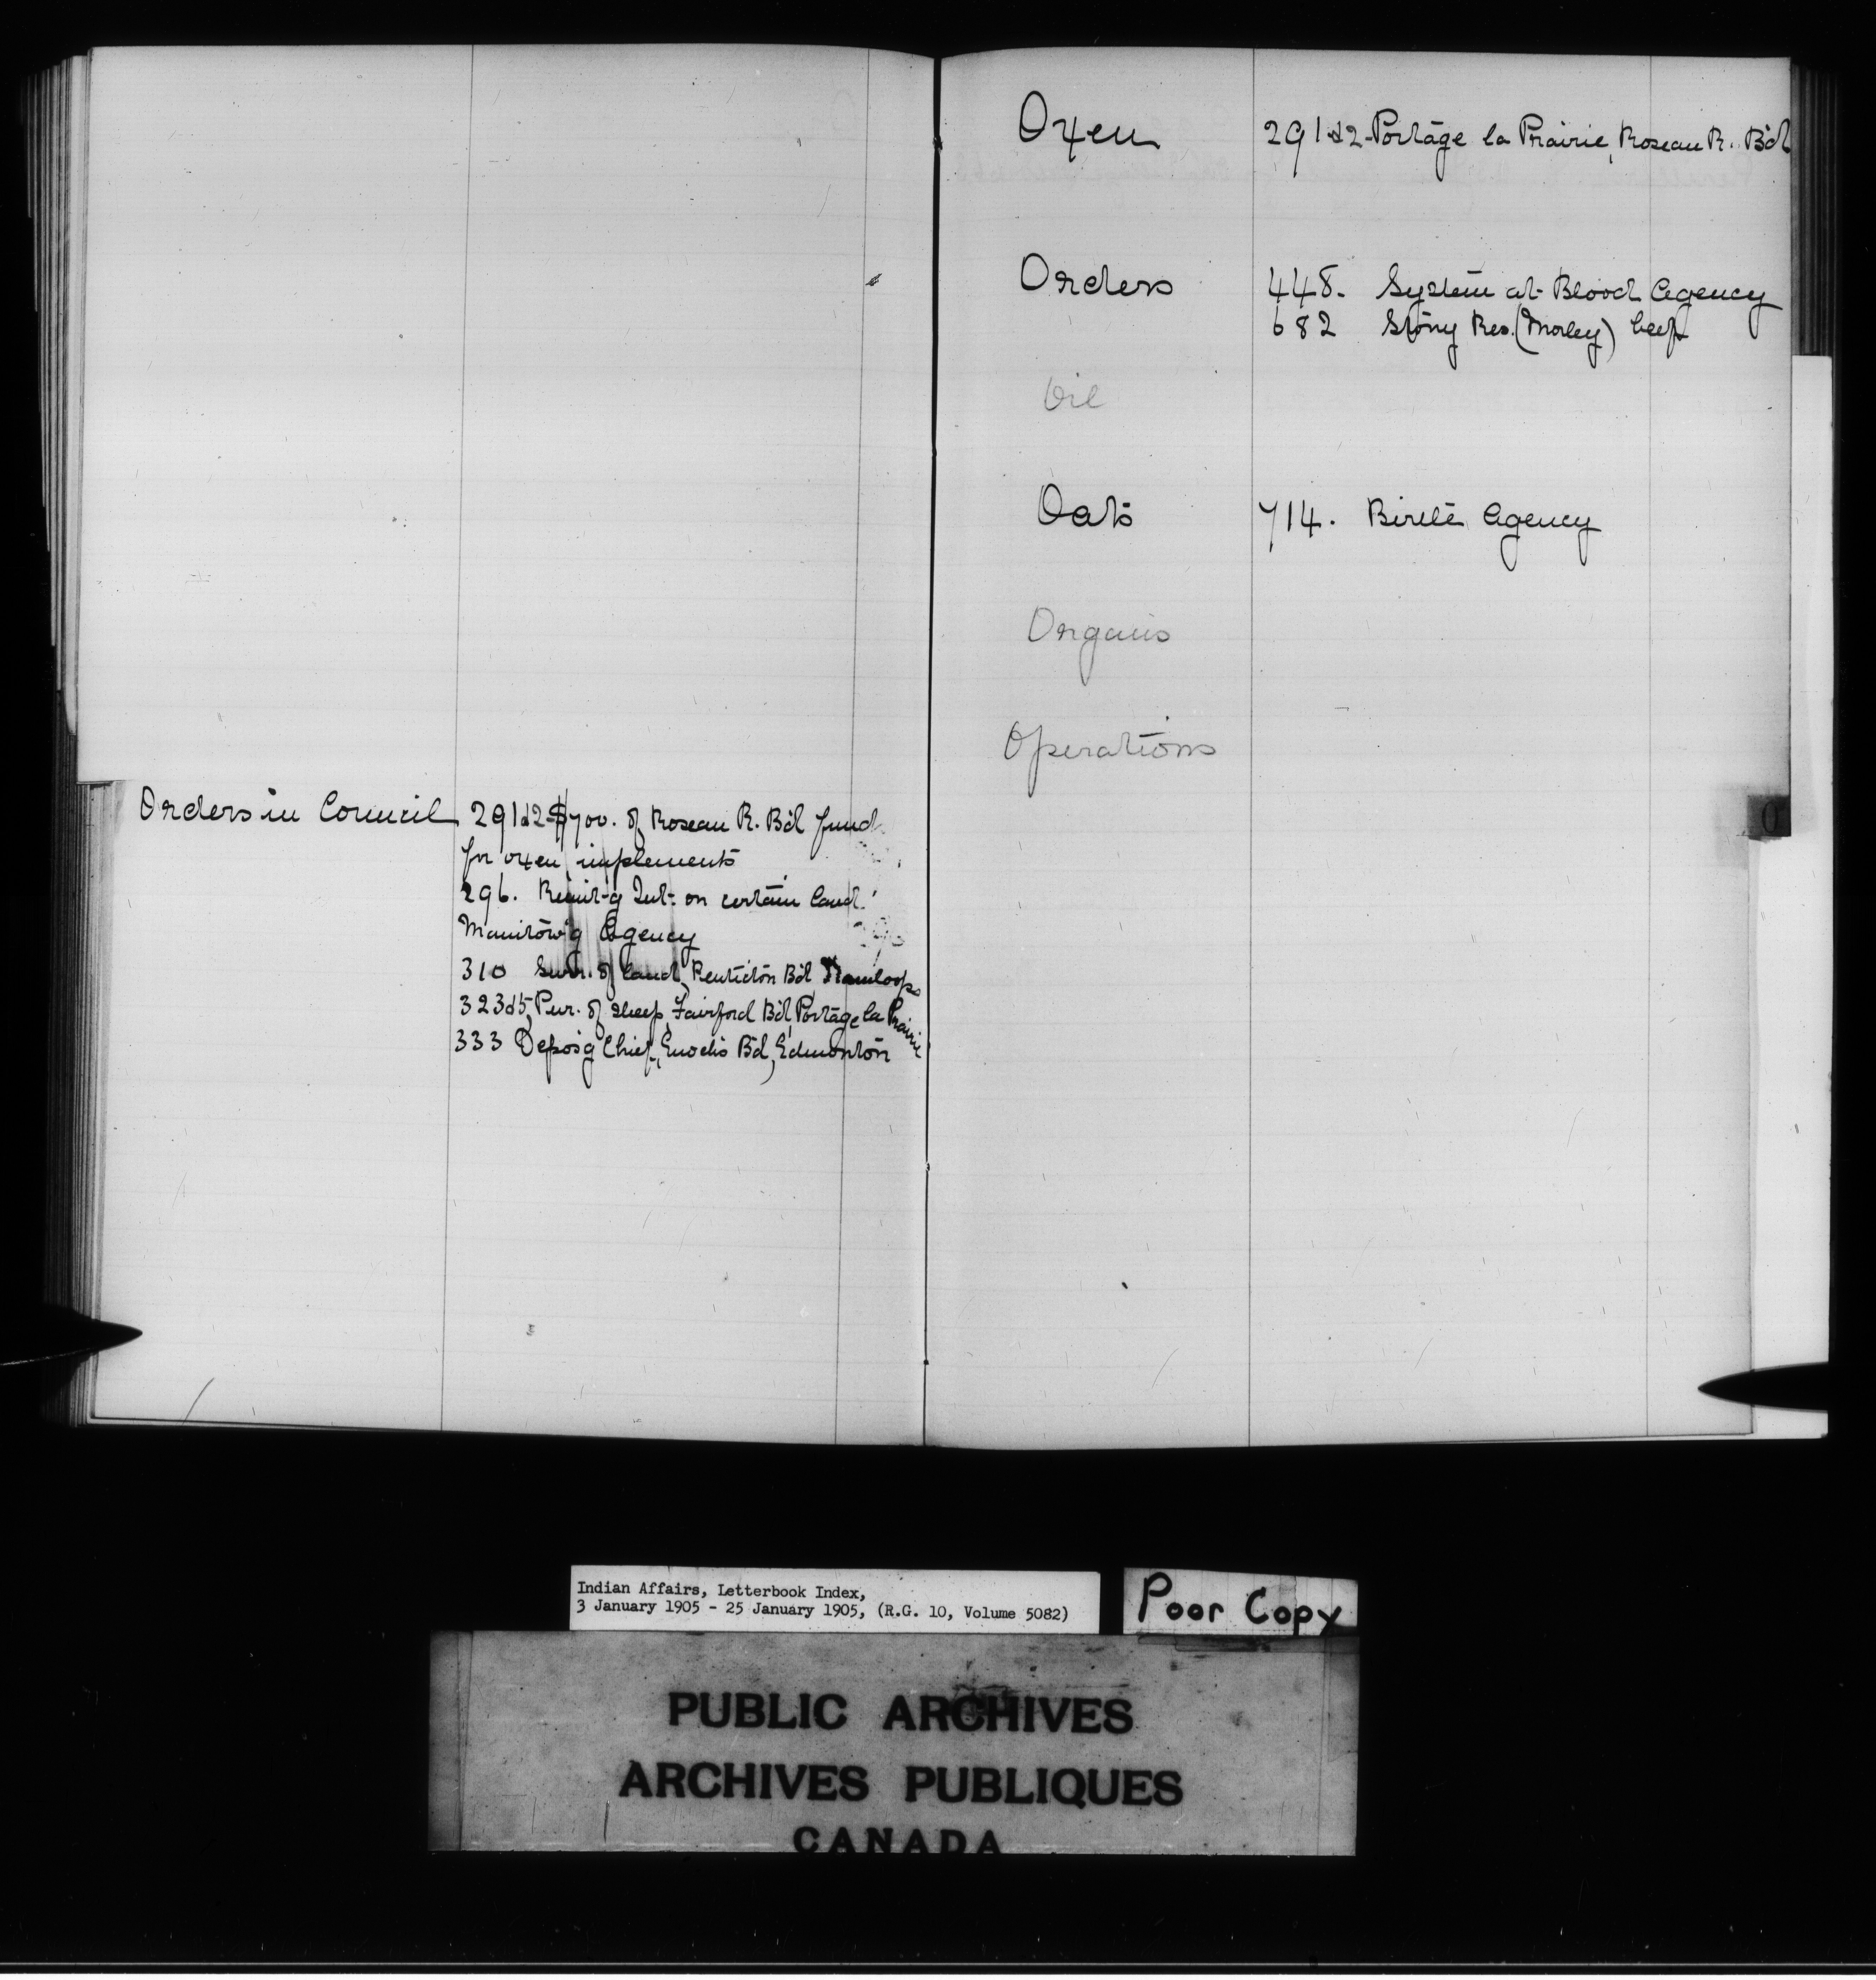 Orders in Council 291&2-$700. of Roseau R. Bd fund
for oxen, implements
296. Remit-g Int. on certain land
Manitow'g Agency
310 Surr. of land, Penticton Bd Kamloops
323&5, Pur. of sheep, Fairford Bd, Portage la Prairie
333 Depos'g Chief, Enoch's Bd, Edmonton
Oxen 291&2-Portage la Prairie, Roseau R. Bd
Orders 448. System at Blood Agency
682 Stony Res. (Morley) beef
Oil
Oats 714. Birtle Agency
Organs
Operations
O
Indian Affairs, Letterbook Index,
3 January 1905 - 25 January 1905, (R.G. 10, Volume 5082)
Poor Copy
PUBLIC ARCHIVES
ARCHIVES PUBLIQUES
CANADA